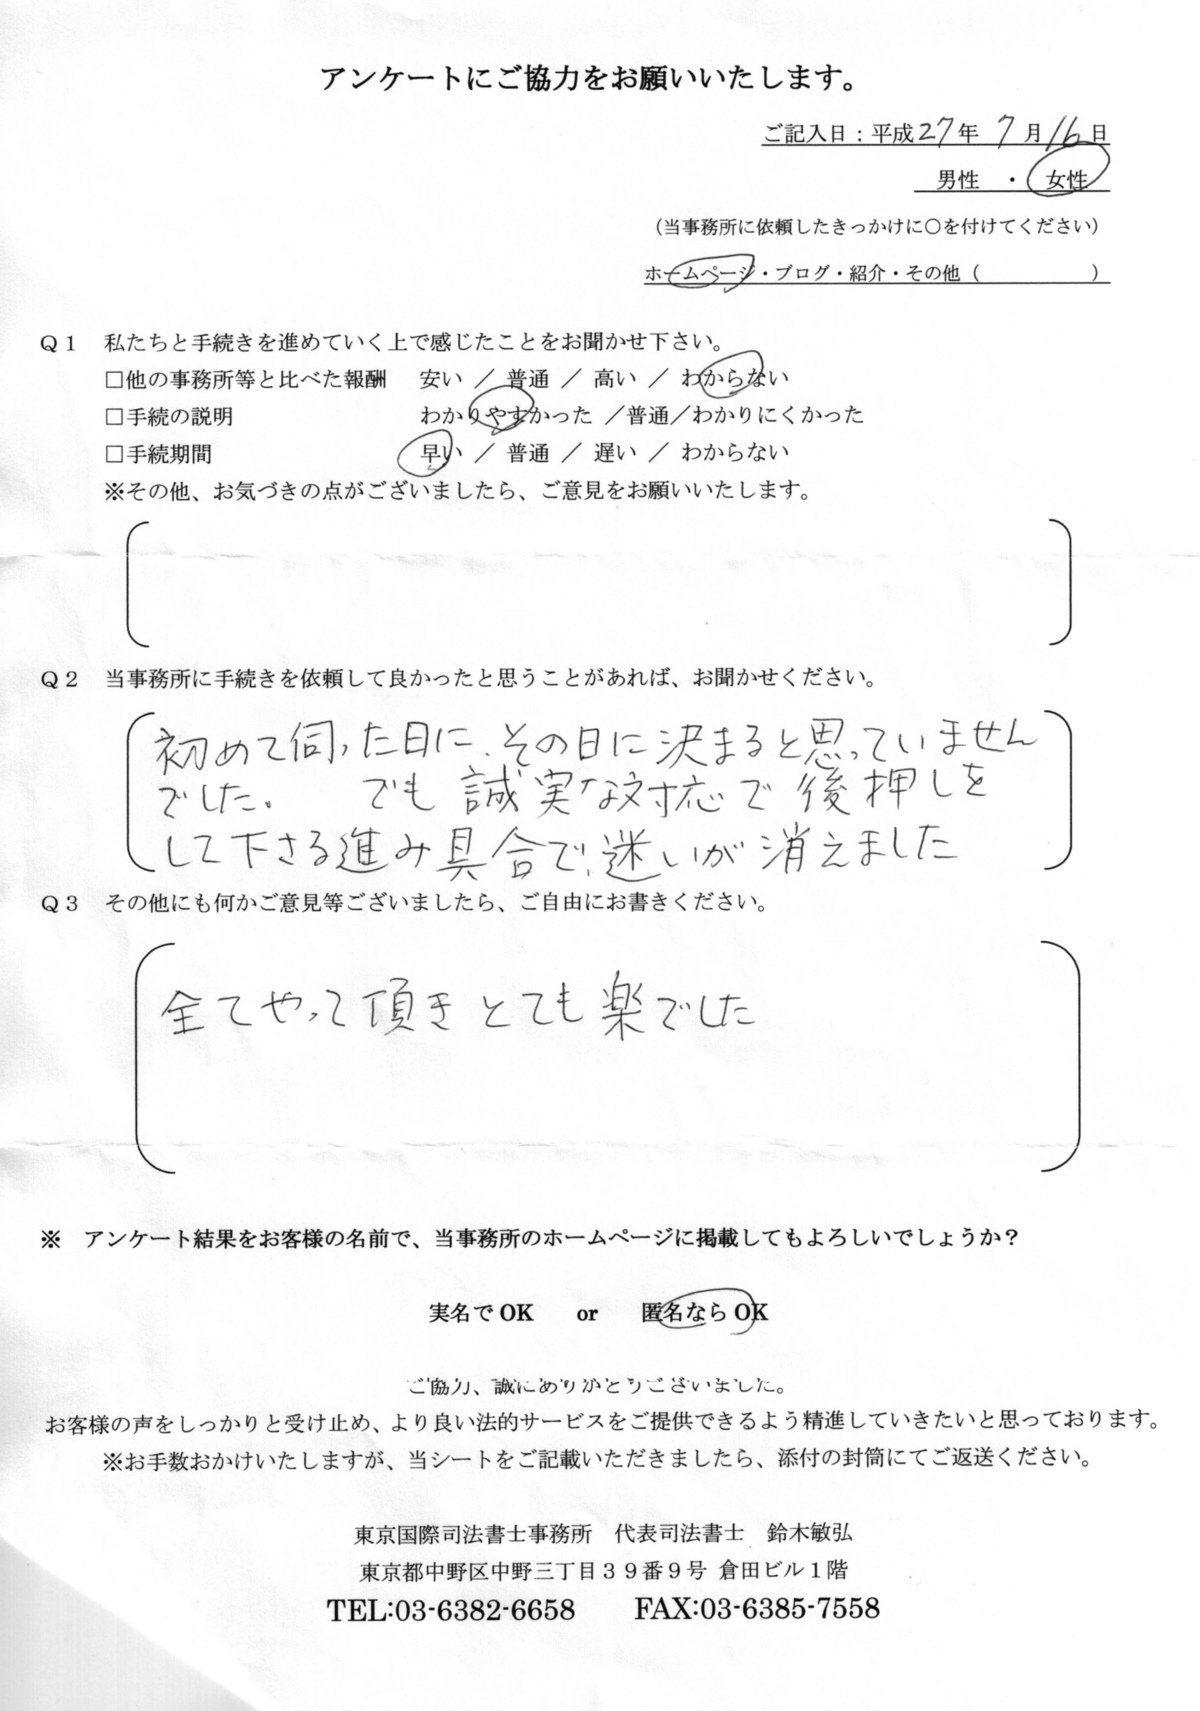 アンケートにご協力をお願いいたします。
ご記入日：平成27年 7月16日
男性 ・ 女性
（当事務所に依頼したきっかけに○を付けてください）
ホームページ・ブログ・紹介・その他（　　　　　）
Ｑ１ 私たちと手続きを進めていく上で感じたことをお聞かせ下さい。
□他の事務所等と比べた報酬 安い ／ 普通 ／ 高い ／ わからない
□手続の説明 わかりやすかった ／普通／わかりにくかった
□手続期間 早い ／ 普通 ／ 遅い ／ わからない
※その他、お気づきの点がございましたら、ご意見をお願いいたします。
Ｑ２ 当事務所に手続きを依頼して良かったと思うことがあれば、お聞かせください。
初めて伺った日に、その日に決まると思っていません
でした。 でも 誠実な対応で 後押しを
して下さる進み具合で、迷いが 消えました
Ｑ３ その他にも何かご意見等ございましたら、ご自由にお書きください。
全てやって頂き とても楽でした
※ アンケート結果をお客様の名前で、当事務所のホームページに掲載してもよろしいでしょうか？
実名で OK or 匿名なら OK
ご協力、誠にありがとうございました。
お客様の声をしっかりと受け止め、より良い法的サービスをご提供できるよう精進していきたいと思っております。
※お手数おかけいたしますが、当シートをご記載いただきましたら、添付の封筒にてご返送ください。
東京国際司法書士事務所 代表司法書士 鈴木敏弘
東京都中野区中野三丁目３９番９号 倉田ビル１階
TEL:03-6382-6658 FAX:03-6385-7558